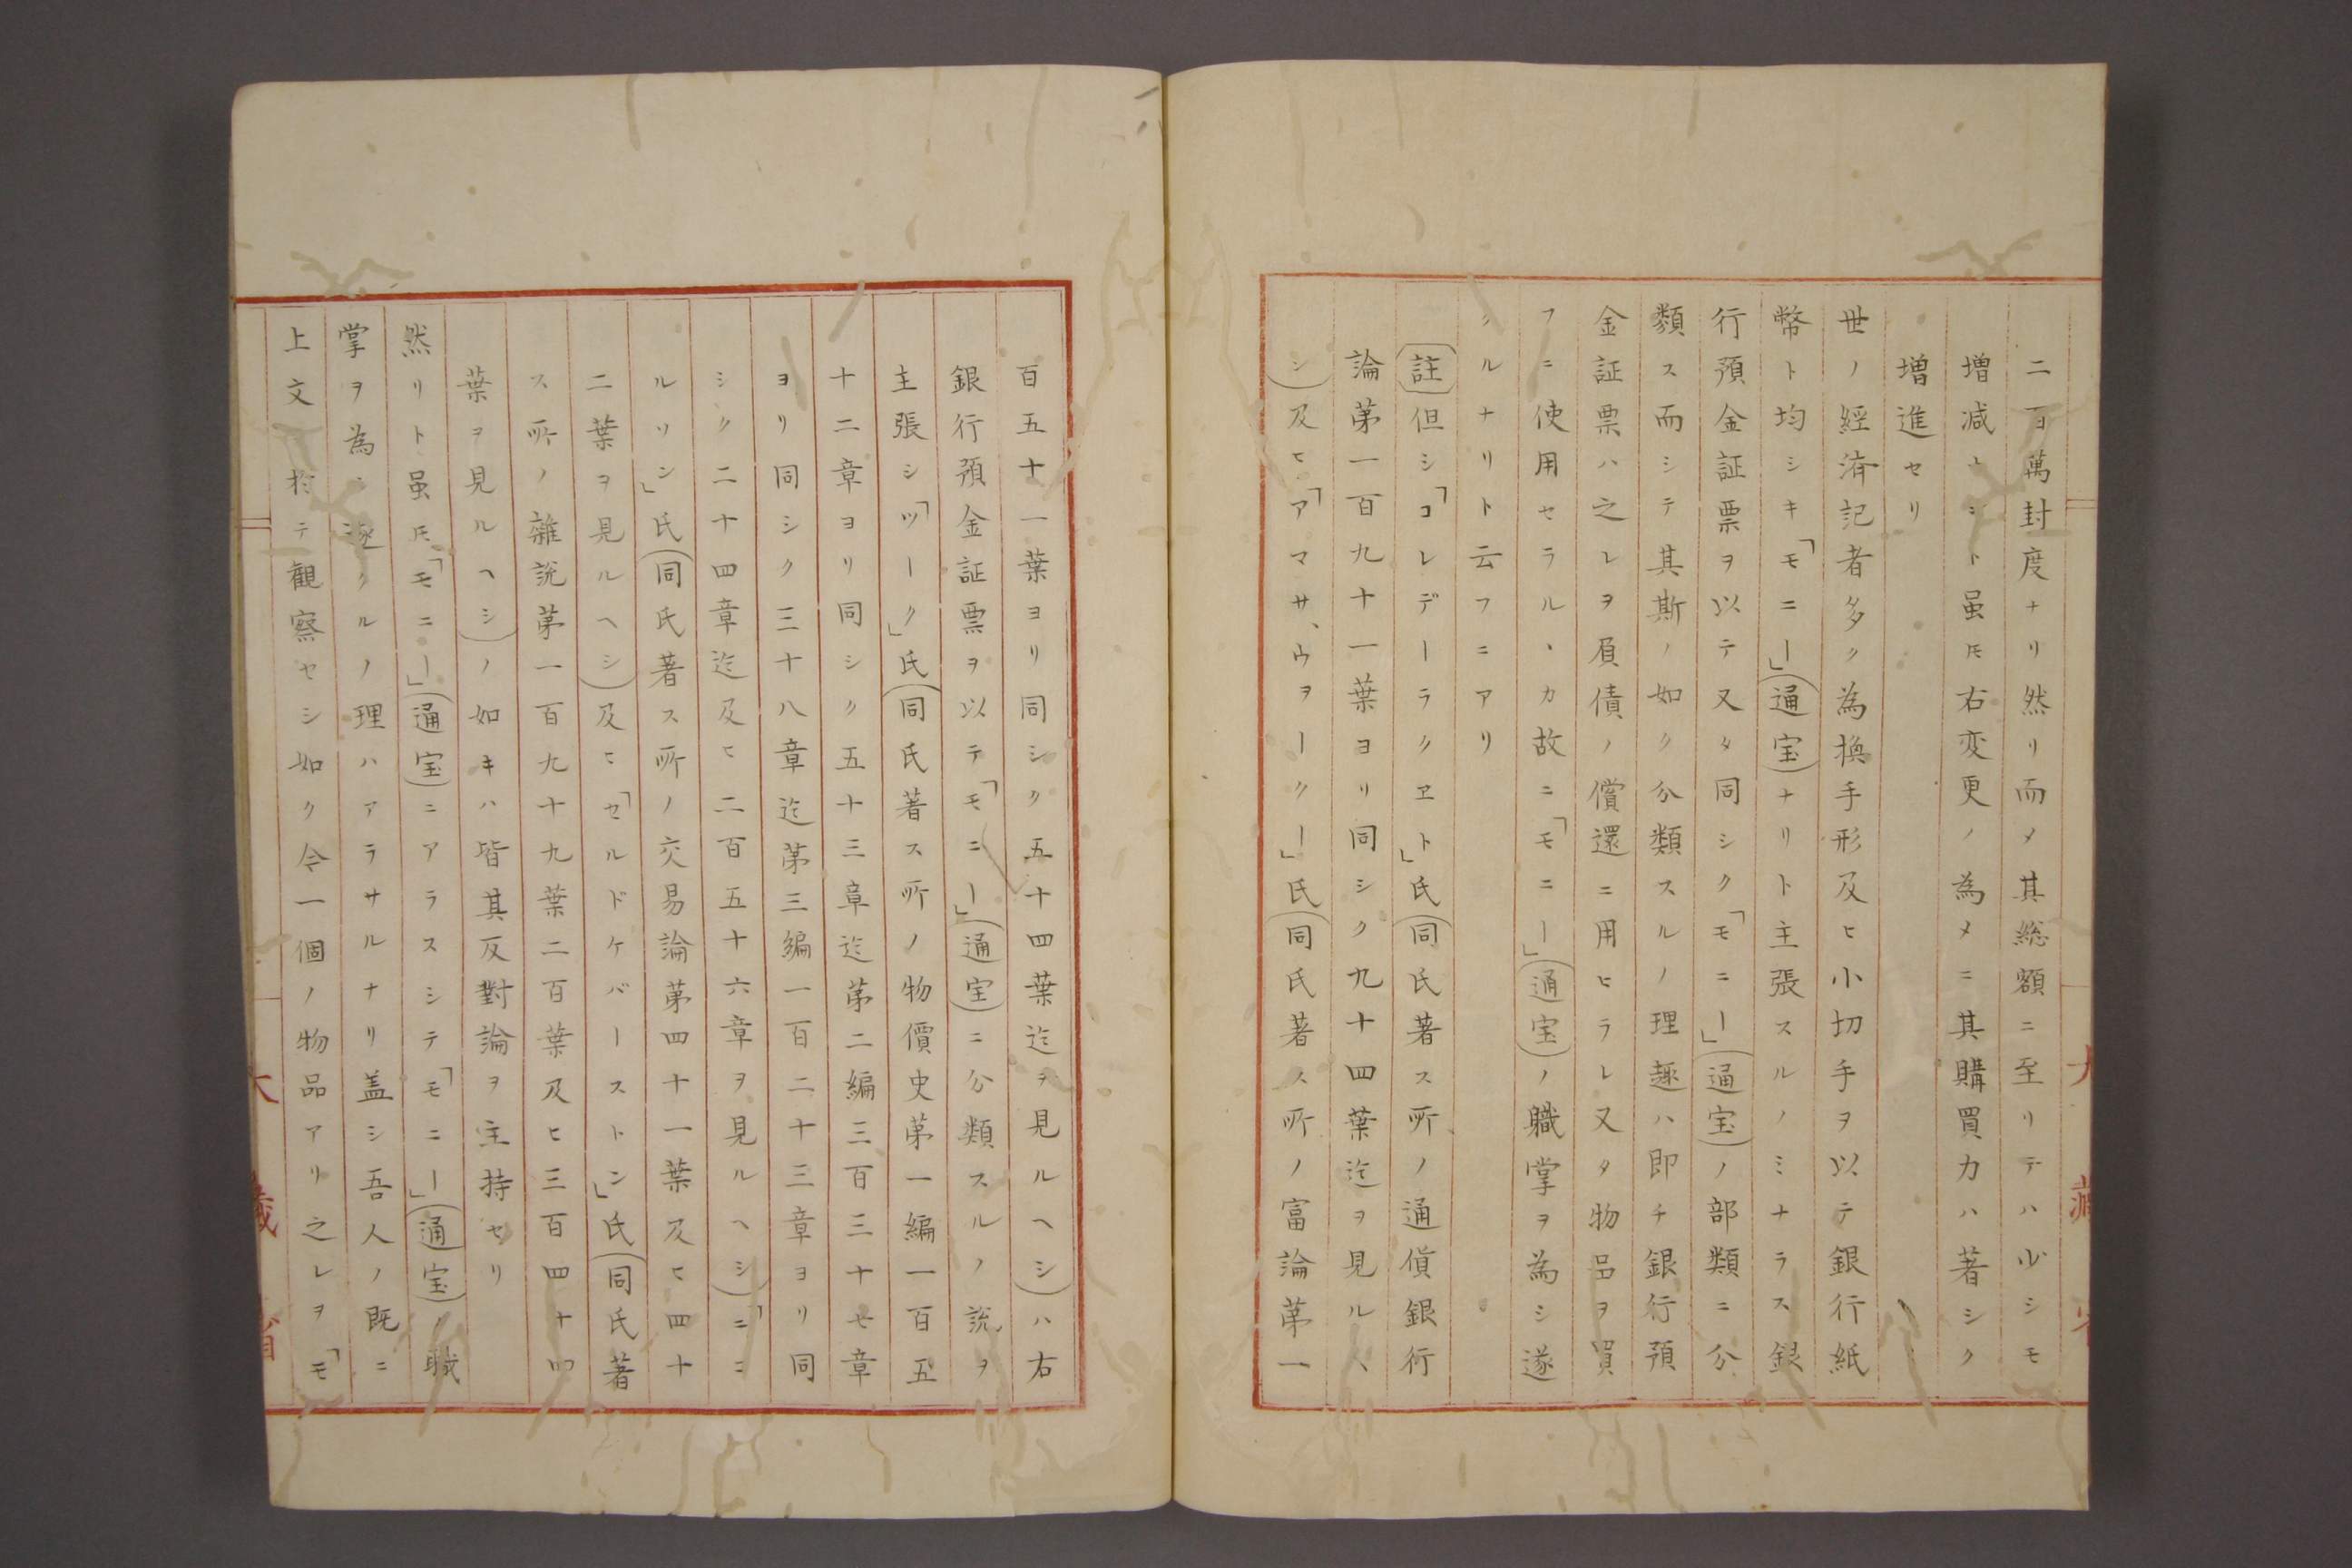 二百萬封度ナリ然リ而メ其総額ニ至リテハ少シモ
増減ナシト虽𪜈右変更ノ為メニ其購買力ハ著シク
増進セリ
世ノ經済記者多ク為換手形及ヒ小切手ヲ以テ銀行紙
幣ト均シキ「モニー」(通宝)ナリト主張スルノミナラス銀
行預金証票ヲ以テ又タ同シク「モニー」(通宝)ノ部類ニ分
類ス而シテ其斯ノ如ク分類スルノ理趣ハ即チ銀行預
金証票ハ之レヲ負債ノ償還ニ用ヒラレ又タ物品ヲ買
フニ使用セラルヽカ故ニ「モニー」(通宝)ノ職掌ヲ為シ遂
クルナリト云フニアリ
(註)但シ「コレデーラクエト」氏(同氏著ス所ノ通貨銀行
論第一百九十一葉ヨリ同シク九十四葉迄ヲ見ルヘ
シ)及ヒ「アマサ、ウヲークー」氏(同氏著ス所ノ富論第一
百五十一葉ヨリ同シク五十四葉迄ヲ見ルヘシ)ハ右
銀行預金証票ヲ以テ「モニー」(通宝)ニ分類スルノ説ヲ
主張シ「ツーク」氏(同氏著ス所ノ物價史第一編一百五
十二章ヨリ同シク五十三章迄第二編三百三十七章
ヨリ同シク三十八章迄第三編一百二十三章ヨリ同
シク二十四章迄及ヒ二百五十六章ヲ見ルヘシ)「ニコ
ルソン」氏(同氏著ス所ノ交易論第四十一葉及ヒ四十
二葉ヲ見ルヘシ)及ヒ「セルドケバーストン」氏(同氏著
ス所ノ雜説第一百九十九葉二百葉及ヒ三百四十四
葉ヲ見ルヘシ)ノ如キハ皆其反對論ヲ主持セリ
然リト虽𪜈「モニー」(通宝)ニアラスシテ「モニー」(通宝)ノ職
掌ヲ為シ遂クルノ理ハアラサルナリ盖シ吾人ノ既ニ
上文 於テ観察セシ如ク今一個ノ物品アリ之レヲ「モ
大藏省